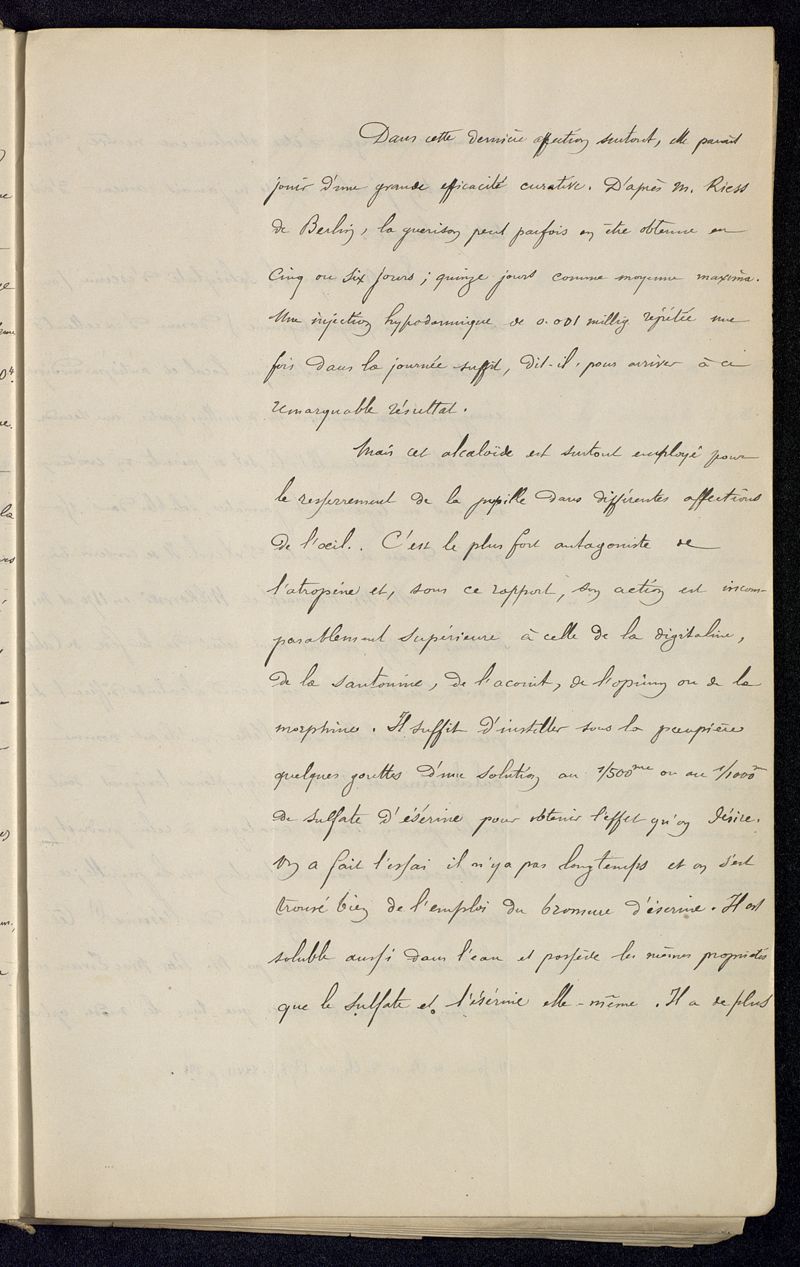 Dans cette dernière affection surtout, elle parait
jouir d'une grande efficacité curative. D'après M. Riess
de Berlin, la guérison peut parfois en être obtenue en
cinq ou six jours ; quinze jours comme moyenne maxima.
Une injection hypodermique de 0.001 millig répétée une
fois dans la journée suffit, dit-il, pour arriver à ce
remarquable résultat.
Mais cet alcaloïde est surtout employé pour
le resserrement de la pupille dans différentes affections
de l'œil. C'est le plus fort antagoniste de
l'atropine et, sous ce rapport, son action est incom-
parablement supérieure à celle de la digitaline,
de la santonine, de l'aconit, de l'opium ou de la
morphine. Il suffit d'instiller sous la paupière
quelques gouttes d'une solution au 1/500me ou au 1/1000m
de sulfate d'ésérine pour obtenir l'effet qu'on désire.
On a fait l'essai il n'y a pas longtemps et on s'est
trouvé bien de l'emploi du bromure d'éserine. Il est
soluble aussi dans l'eau et possède les mêmes propriétés
que le sulfate et l'ésérine elle-même. Il a de plus